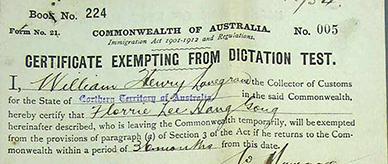 Book No. 224
Form No. 21. COMMONWEALTH OF AUSTRALIA. No. 005
Immigration Act 1901-1912 and Regulations.
CERTIFICATE EXEMPTING FROM DICTATION TEST.
I, William Henry the Collector of Customs
for the State of Northern Territory of Australia in the said Commonwealth,
hereby certify that Florrie Lee Hang Gong
hereinafter described, who is leaving the Commonwealth temporarily, will be exempted
from the provisions of paragraph (a) of Section 3 of the Act if he returns to the Com-
monwealth within a period of 36 months from this date.